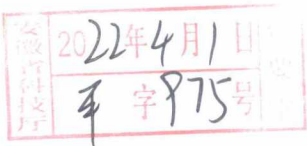 安徽省科技厅
2022年4月1日
字975号